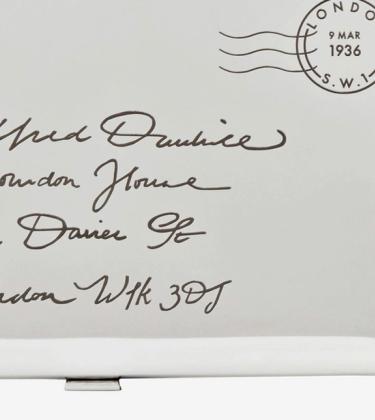 LONDO
9 MAR
1936
S.W.1
lfred Dunhill
ourdon House
Davies St
ndon W1k 3DJ